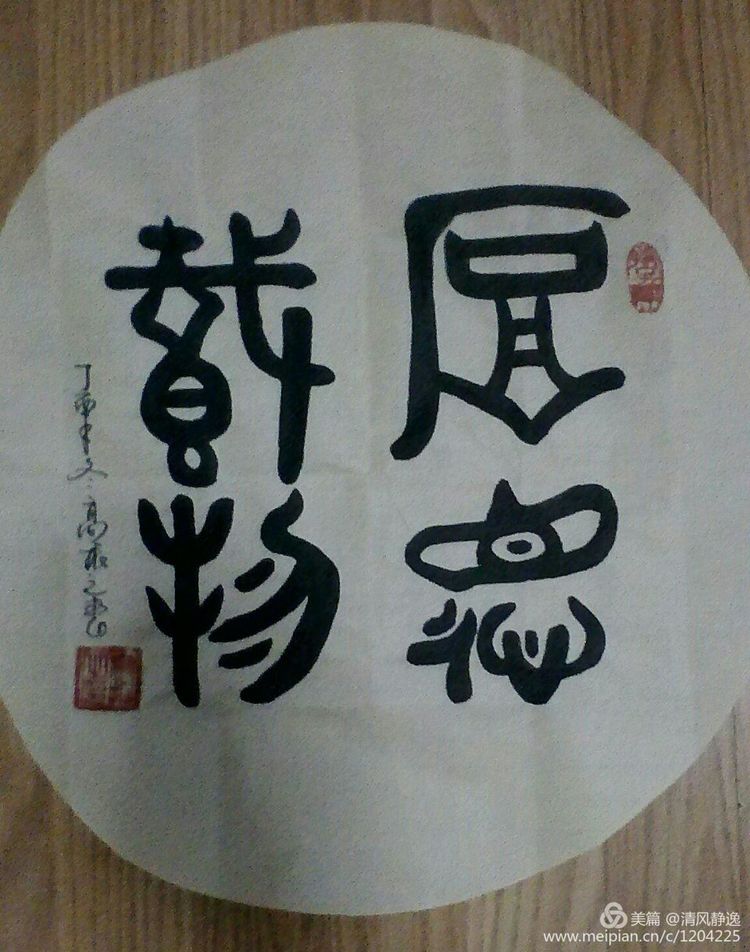 厚德
载物
丁酉年冬高
书
美篇 @清风静逸
www.meipian.cn/c/1204225